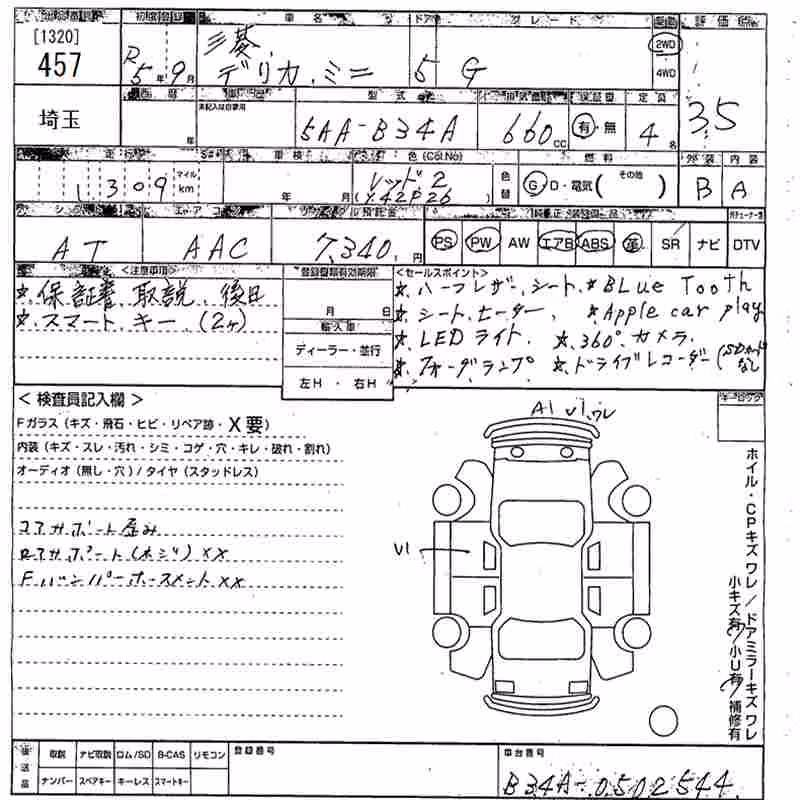 [1320]
457
初度登録 車名 ドア グレード 評価点
R5年9月 三菱 デリカ.ミニ 5 G 2WD
4WD
3.5
埼玉
型式 定員
年 5AA-B34A 660cc 有・無 4名
車検 色(Col.No) 燃料 外装 内装
1309 マイル km 年 月 レッド2 (X42P26) 色替 G・D・電気( その他 ) B A
AT AAC 7,340.円 PS PW AW エアB ABS 革 SR ナビ DTV
<注意事項>
☆.保証書 取説.後日
☆.スマート.キー (2ヶ)
登録書類有効期限
月 日
輸入車
ディーラー・並行
左H ・ 右H
<セールスポイント>
☆.ハーフレザー.シート.☆BLue Tooth
☆.シート.ヒーター. ☆Apple car play
☆.LEDライト. ☆.360°カメラ.
☆.フォーグランプ ☆.ドライブレコーダー(SDカードなし
<検査員記入欄>
Fガラス(キズ・飛石・ヒビ・リペア跡・X要)
内装(キズ・スレ・汚れ・シミ・コゲ・穴・キレ・破れ・割れ)
オーディオ(無し・穴)/タイヤ(スタッドレス)
コアサポート歪み
コアサポート(ネジ)××
Fバンパーホースメント××
A1 V1.ワレ
V1
キーロック
ホイル・CPキズ ワレ/ドアミラーキズ ワレ
小キズ有/小U有/補修有
後送品 取説 ナビ取説 ロム/SD B-CAS リモコン 登録番号 車台番号
ナンバー スペアキー キーレス スマートキー
B34A-0502544.